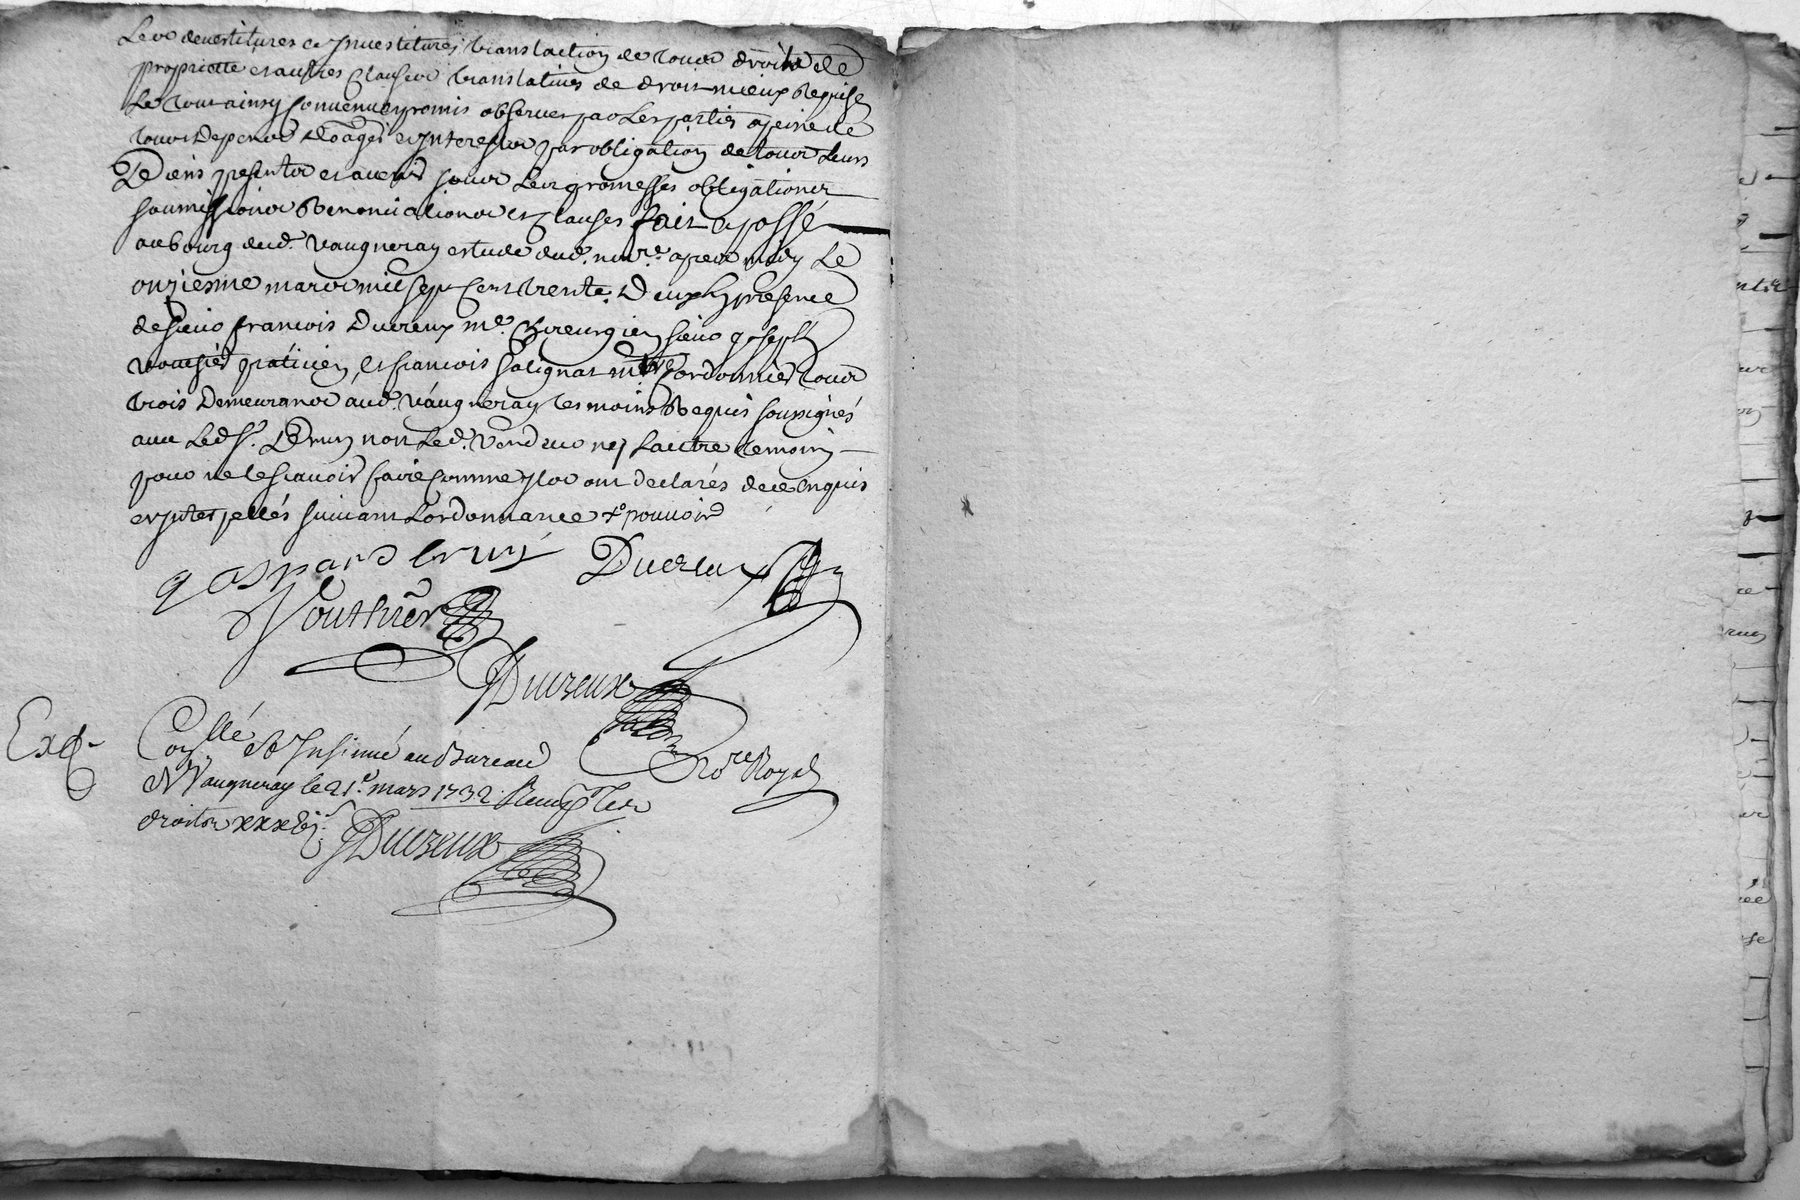 Les devestitures et jnvestitures translaction de tous droits de
propriette et autres clauses translatives de droit mieux Requise
Le tout ainsy convenu et promis observer par Les parties a peine de
tous depens domages et jnterest par obligation de tous Leurs
Biens presents et avenir sous Leur promesses obligations
soumissions Renonciations et clauses fait et passé
au bourg dud. Vaugneray estude dud. nore. apres midy Le
onziesme mars mil sept cent trente Deux En presence
de sieur francois Ducreux me. Chireurgien sieur joseph
vouthier praticien, et francois salignat me cordonnier tous
trois Demeurants aud. vaugneray tesmoins Requis soussignés
avec Led. sr. Brun non Led. vendeur ny Lautre temoin
pour ne le scavoir faire comme jls ont declarés de ce enquis
et jnterpellés suivant Lordonnance & pouvoir
gaspard brun Ducreux
Vouthier
Ducreux
Nore Royal
Exp.
Conllé Et Insinué au Bureau
de Vaugneray le 21e. mars 1732. Receu pr les
droits xxx
Ducreux